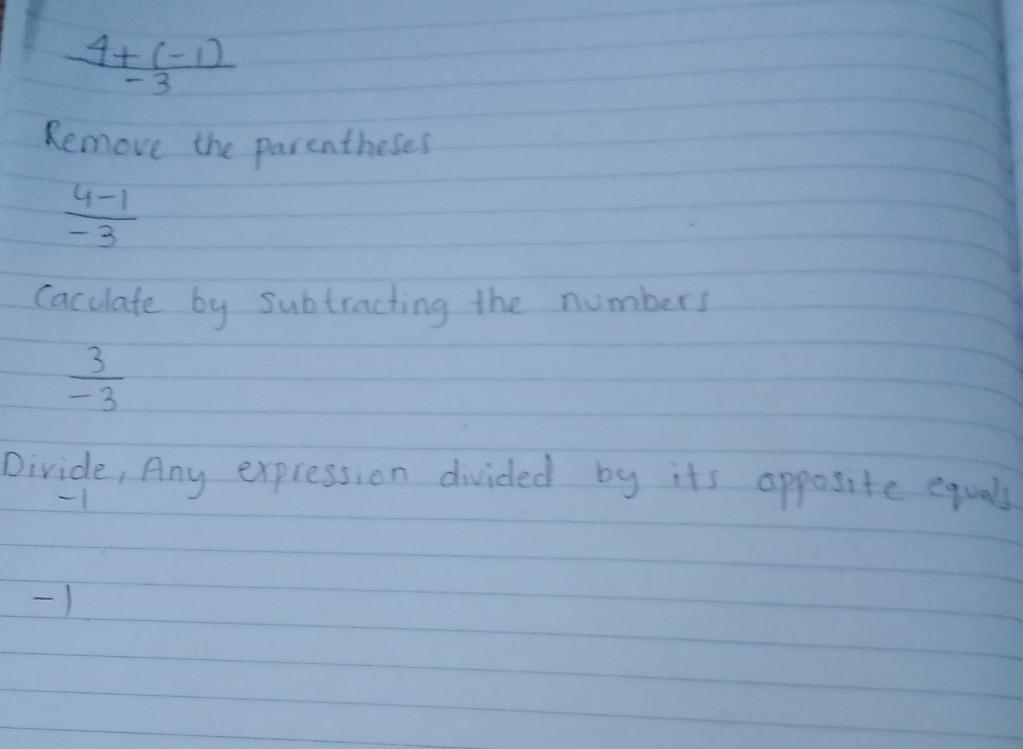 4+(-1)
-3
Remove the parentheses
4-1
-3
Caculate by subtracting the numbers
3
-3
Divide, Any expression divided by its opposite equals
-1
-1